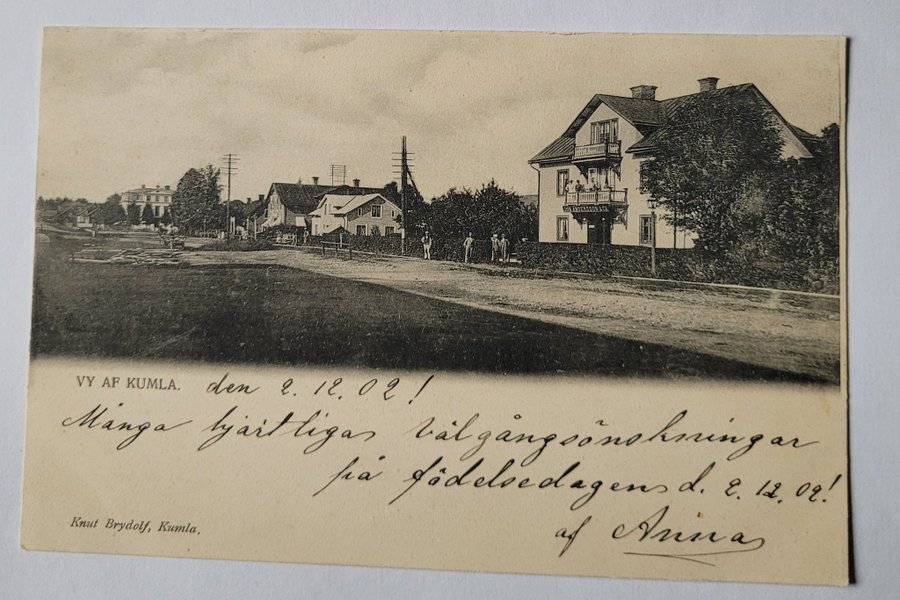 VY AF KUMLA. den 2.12.02!
Många hjärtliga välgångsönskningar
på födelsedagen d. 2.12.02!
af Anna
Knut Brydolf, Kumla.